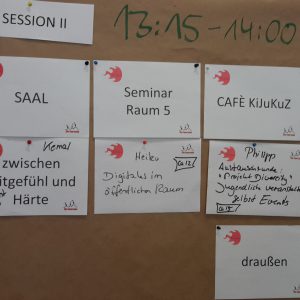 SESSION II
13:15-14:00
SAAL
Seminar
Raum 5
CAFÈ KiJuKuZ
Kemal
zwischen
itgefühl und
Härte
Heiko
Digitales im
öffentlichen Raum
Philipp
Austauschrunde
"Projekt Diversity"
Jugendlich veranstalte
selbst Events
draußen